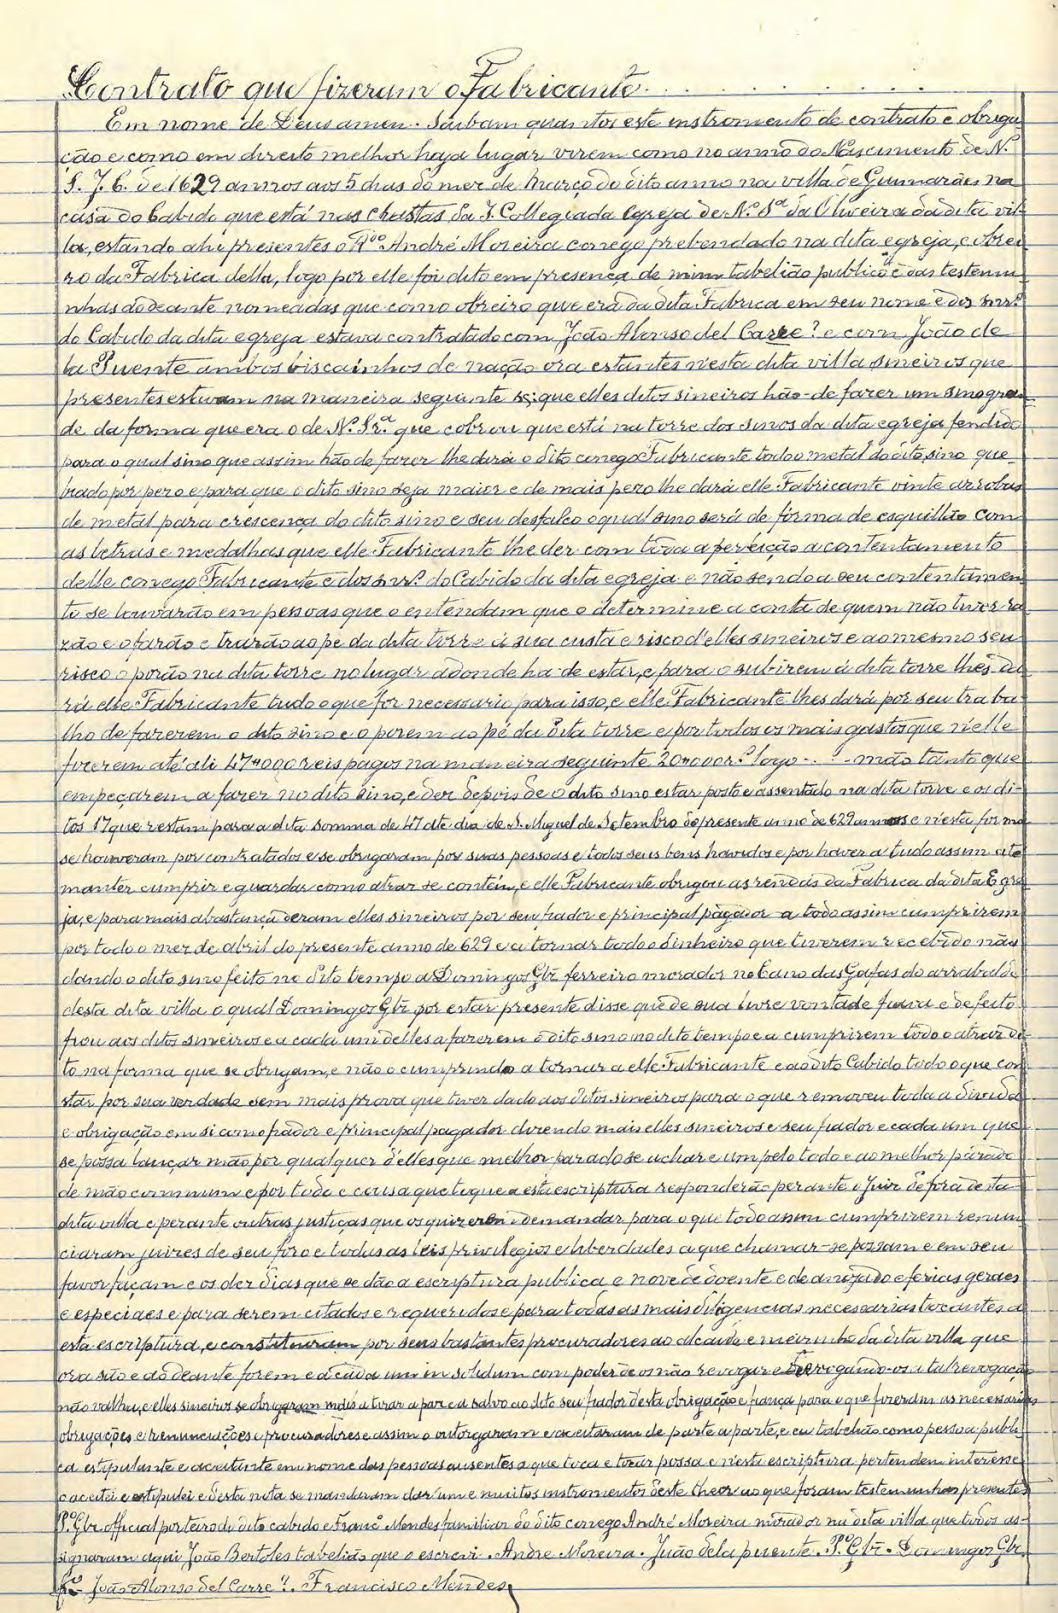 Contrato que fizeram o Fabricante . . . . . . . .
Em nome de Deus amen. Saibam quantos este instromento de contrato e obriga
ção e como em direito melhor haja lugar virem como no anno do Nascimento de N.
S. J. C. de 1629 annos aos 5 dias do mez de março do dito anno na villa de Guimarães na
casa do Cabido que está nas chastas da I. Collegiada egreja de N.ª S.ª da Oliveira da dita vil-
la, estando ahi presentes o R.do André Moreira conego prebendado na dita egreja, e obrei
ro da Fabrica della, logo por elle foi dito em presença de mim tabelião publico e das testemu
nhas ao deante nomeadas que como obreiro que era da dita Fabrica em seu nome e dos snr.s
do Cabido da dita egreja estava contratado com João Alonso del Carre? e com João de
la Puente ambos biscainhos de nação ora estantes n'esta dita villa sineiros que
presentes estavam na maneira seguinte sç: que elles ditos sineiros hão-de fazer um sino gran
de da forma que era o de N.ª Sr.ª que cobrou que está na torre dos sinos da dita egreja fendido
para o qual sino que assim hão de fazer lhe dará o dito conego Fabricante todo o metal do dito sino que
brado por pezo e para que o dito sino seja maior e de mais pezo lhe dará elle Fabricante vinte arrobas
de metal para crescença do dito sino e seu desfalco o qual sino será de forma de esquillão com
as letras e medalhas que elle Fabricante lhe der com toda a perfeição a contentamento
delle conego Fabricante e dos snr.s do Cabido da dita egreja e não sendo a seu contentamen
to se louvarão em pessoas que o entendam que o determine a conta de quem não tiver ra
zão e o farão e trarão ao pé da dita torre á sua custa e risco d'elles sineiros e ao mesmo seu
risco o porão na dita torre no lugar adonde ha-de estar, e para o subirem á dita torre lhes da
rá elle Fabricante tudo o que for necessario para isso, e elle Fabricante lhes dará por seu traba
lho de fazerem o dito sino e o porem ao pé da dita torre e por todos os mais gastos que n'elle
fizerem até ali 47$000 reis pagos na maneira seguinte 20$000 r.s logo . . . mão tanto que
empeçarem a fazer no dito sino, e dez depois de o dito sino estar posto e assentado na dita torre e os di-
tos 17 que restam para a dita somma de 47 até dia de S. Miguel de Setembro do presente anno de 629 annos e n'esta forma
se houveram por contratados e se obrigaram por suas pessoas e todos seus bens havidos e por haver a tudo assim
manter cumprir e guardar como atraz se contém, e elle Fabricante obrigou as rendas da Fabrica da dita Egre
ja, e para mais abastança deram elles sineiros por seu fiador e principal pagador a todo assim cumprirem
por todo o mez de abril do presente anno de 629 e a tornar todo o dinheiro que tiverem recebido não
dando o dito sino feito no dito tempo a Domingos Glz ferreiro morador no Cano das Gafas do arrabalde
desta dita villa o qual Domingos Glz por estar presente disse que de sua livre vontade fiava e de feito
fiou aos ditos sineiros e a cada um delles a fazerem o dito sino no dito tempo e a cumprirem todo o atraz di
to na forma que se obrigam, e não o cumprindo a tornar a elle Fabricante e ao dito Cabido todo o que con
star por sua verdade sem mais prova que tiver dado aos ditos sineiros para o que removeu toda a divida
e obrigação em si como fiador e principal pagador dizendo mais elles sineiros e seu fiador e cada um que
se possa lançar mão por qualquer d'elles que melhor parado se achar e um pelo todo e ao melhor parado
de mão commum e por todo e cousa que toque a esta escriptura responderão perante o Juiz de fora desta
dita villa e perante outras justiças que os quizerem demandar para o que todo assim cumprirem renun
ciaram juizes de seu foro e todas as leis privilegios e liberdades a que chamar-se possam e em seu
favor façam e os dez dias que se dão a escriptura publica e nove de doente e de anojado e ferias geraes
e especiaes e para serem citados e requeridos e para todas as mais diligencias necessarias tocantes a
esta escriptura, e constituiram por seus bastantes procuradores ao alcaide e meirinho da dita villa que
ora são e ao deante forem e a cada um in solidum com poder de os não revogar e revogando-os a tal revogação
não valha, e elles sineiros se obrigaram mais a tirar a paz e a salvo ao dito seu fiador desta obrigação e fiança para o que fizeram as necessarias
obrigações e renunciações e procuradores e assim o outorgaram e aceitaram de parte a parte, e eu tabelião como pessoa publi
ca estipulante e aceitante em nome das pessoas ausentes a que toca e tocar possa e n'esta escriptura pertendem interesse
o aceitei e estipulei e desta nota se mandaram dar um e muitos instromentos deste theor ao que foram testemunhas presentes
P.º Glz official porteiro do dito cabido e Franc.º Mendes familiar do dito conego André Moreira morador na dita villa que todos as-
signaram aqui João Bertoles tabelião que o escrevi. Andre Moreira. Juão dela puente. P.º Glz. Domingos Glz.
João Alonso del Carre?. Francisco Mendes